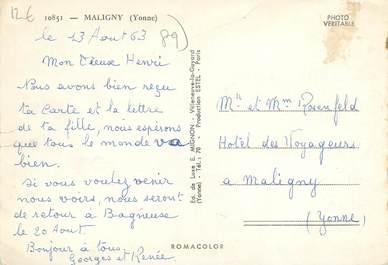 12€
10851 — MALIGNY (Yonne)
PHOTO
VERITABLE
le 13 Aout 63
89)
Mon Vieux Henri
Nous avons bien reçu
ta Carte et la lettre
de ta fille, nous espérons
que tous le monde va
bien.
Si vous voulez venir
nous voir, nous serons
de retour à Bagneux
le 20 Aout.
Bonjour à tous.
Georges et Renée.
Ed. de Luxe E. MIGNON - Villeneuve-la-Guyard
(Yonne) - Tél.: 78 - Production ESTEL - Paris
Mr et Mme Rosenfeld
Hotel des Voyageurs
a Maligny
(Yonne)
ROMACOLOR